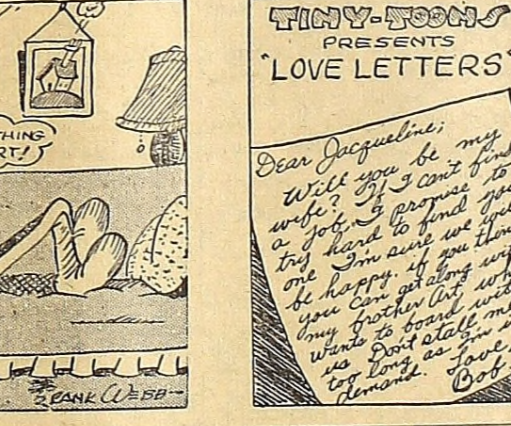 THING
RT!
FRANK WEBB
TINY-TOONS
PRESENTS
"LOVE LETTERS"
Dear Jacqueline;
Will you be my
wife? If I can't find
a job, I promise to
try hard to find you
one I'm sure we will
be happy. if you think
you can get along wi
my brother Art, wh
wants to board wit
us Don't stall me
too long as I'm in
demand. Love,
Bob